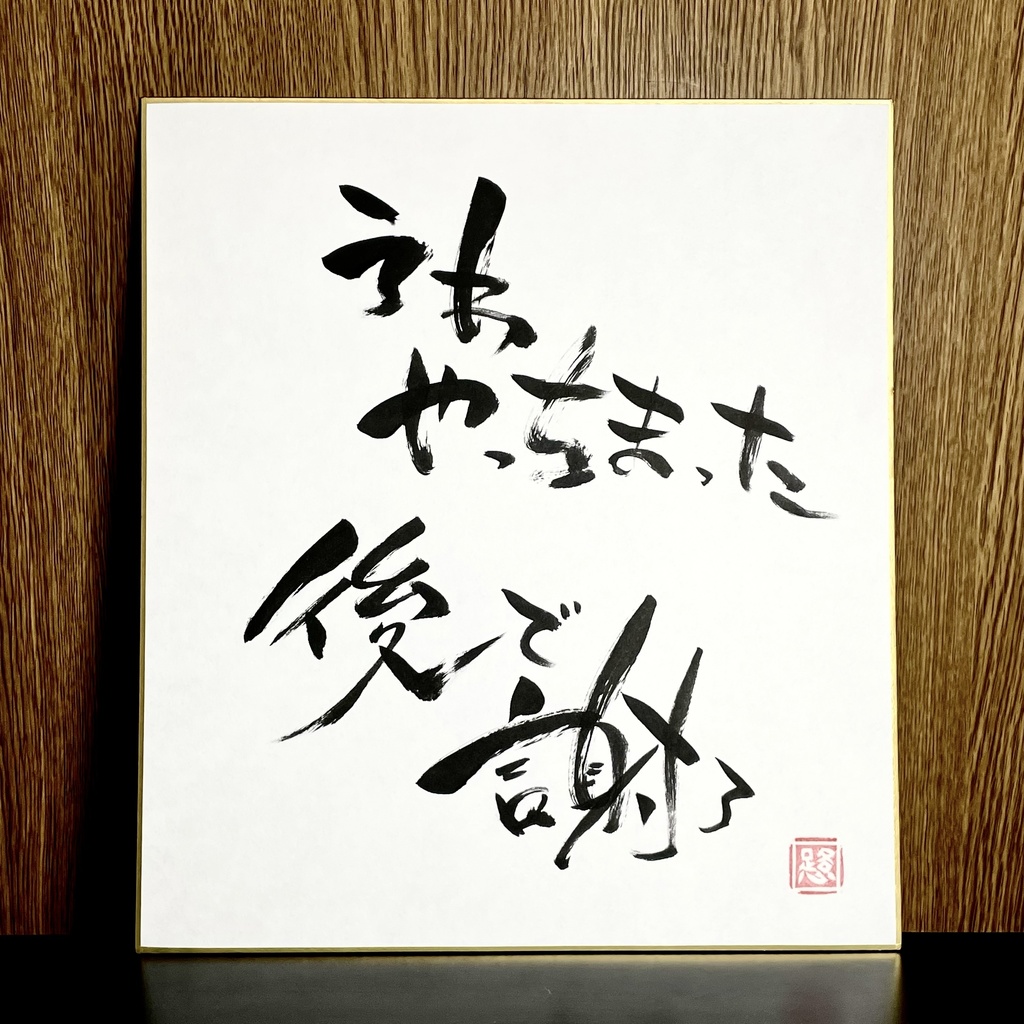 うわ
やっちまった
後で
謝ろ